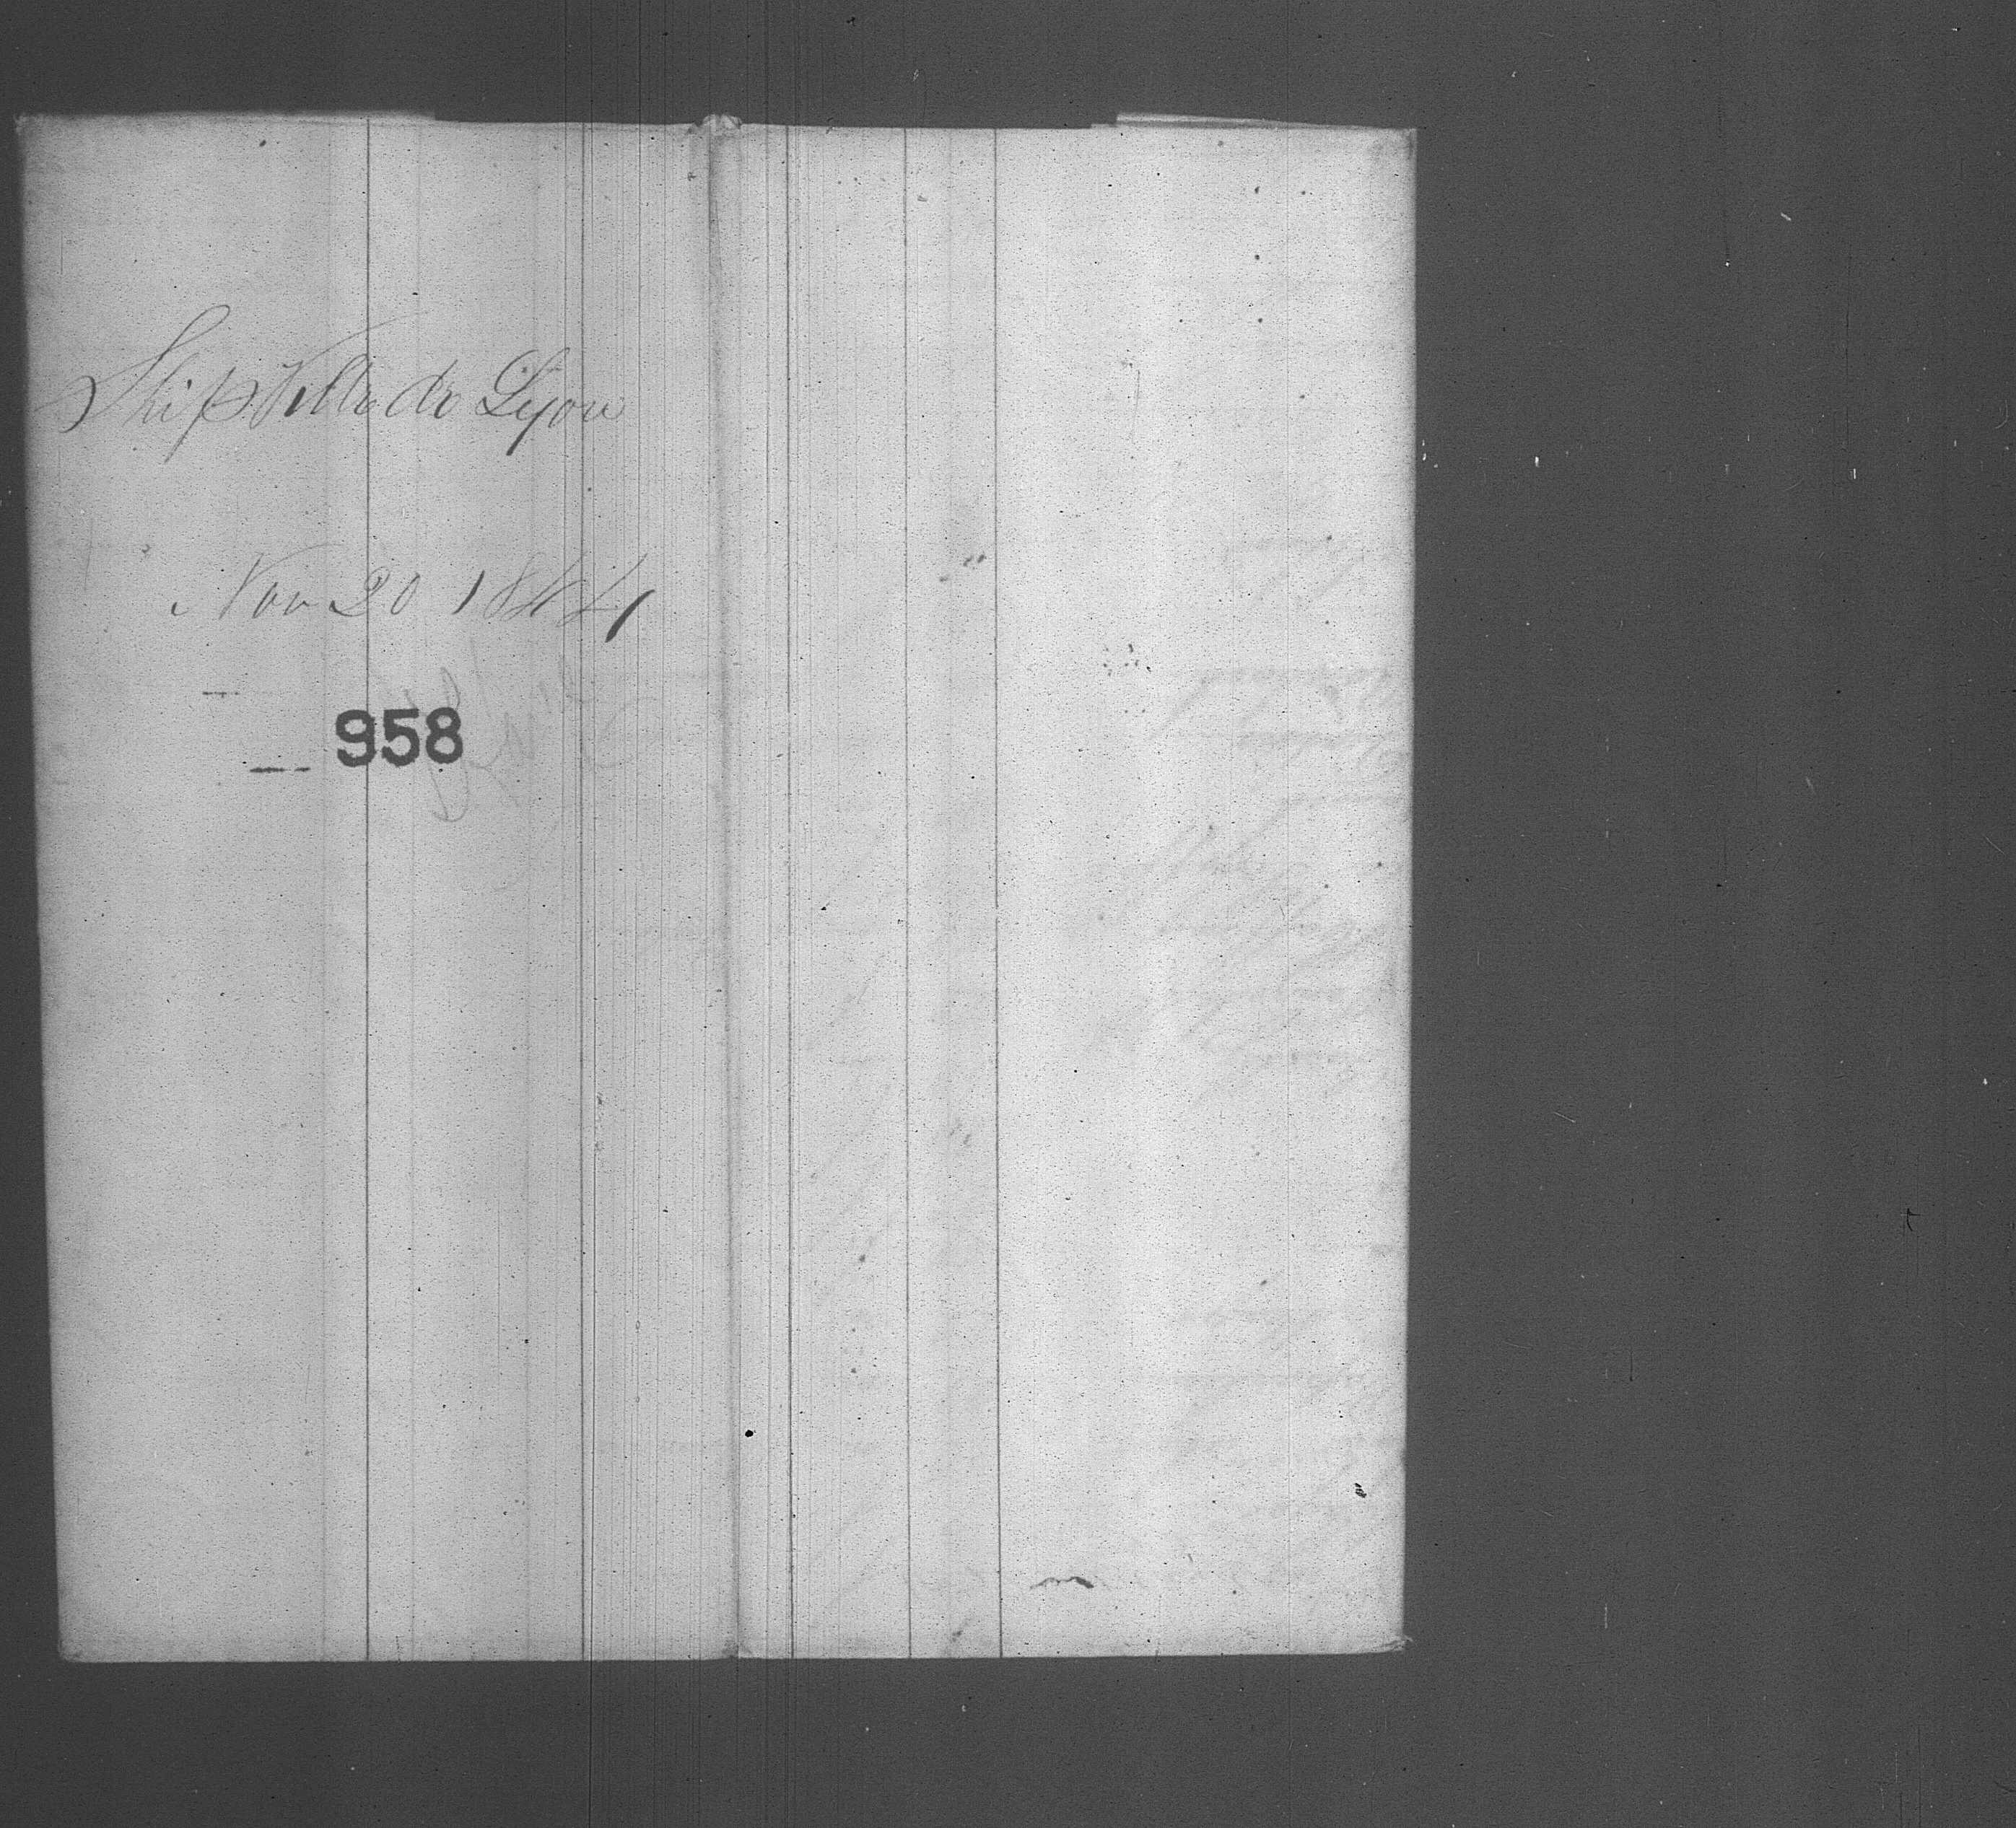 Ship Ville de Lyon
Nov 20 1844
958